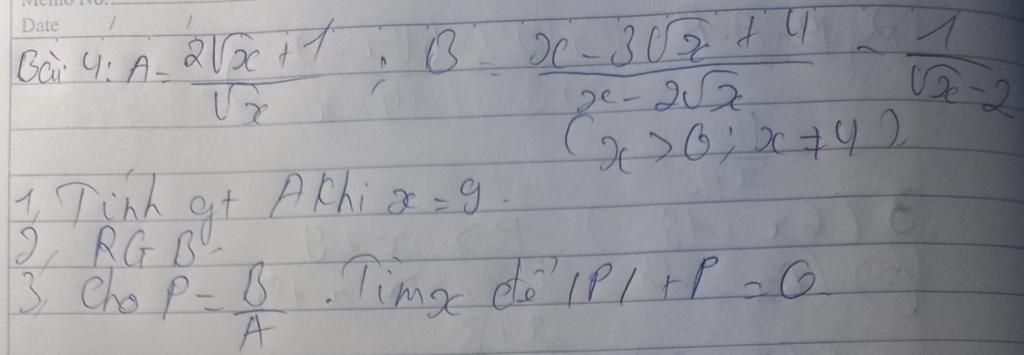 Memo No.
Date / /
Bài 4: A = (2√x + 1)/√x ; B = (x - 3√x + 4)/(x - 2√x) - 1/(√x - 2)
(x > 0; x ≠ 4)
1, Tính gt A khi x = 9.
2, RG B.
3, Cho P = B/A . Tìm x để |P| + P = 0